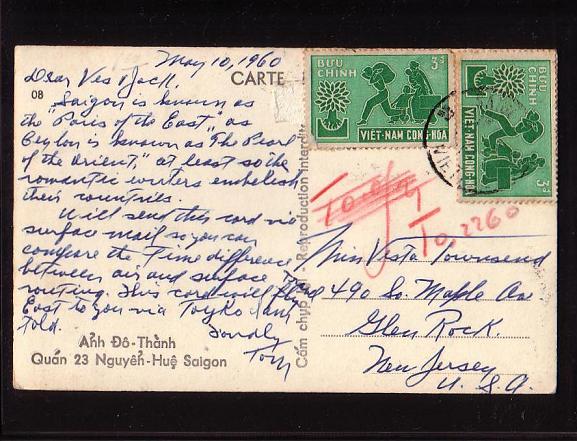 May 10, 1960
CARTE
Dear Ves & Jack,
08
Saigon is known as
the "Paris of the East", as
Ceylon is known as "The Pearl
of the Orient," at least so the
romantic writers embelish
their countries.
Will send this card via
surface mail so you can
compare the time difference
between air and surface
routing. This card will fly
East to you via Toyko I am
told.
Fondly
Tom
Ảnh Đô-Thành
Quán 23 Nguyễn-Huệ Saigon
Cấm chụp lại - Reproduction interdite
BƯU CHÍNH
3đ
VIỆT-NAM CỘNG-HÒA
BƯU CHÍNH
3đ
VIỆT-NAM CỘNG-HÒA
VIET
T0,2260
Miss Vesta Townsend
490 So. Maple Ave
Glen Rock.
New Jersey
U. S. A.